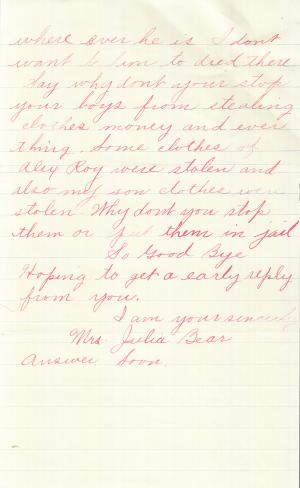 where ever he is I dont
want to him to died there
Say why dont your stop
your boys from stealing
clothes money and ever
thing. Some clothes of
Alex Roy were stolen and
also my son clothes were
stolen Why dont you stop
them or put them in jail
So Good Bye
Hoping to get a early reply
from you.
I am your sincerly
Mrs Julia Bear
Answer Soon.